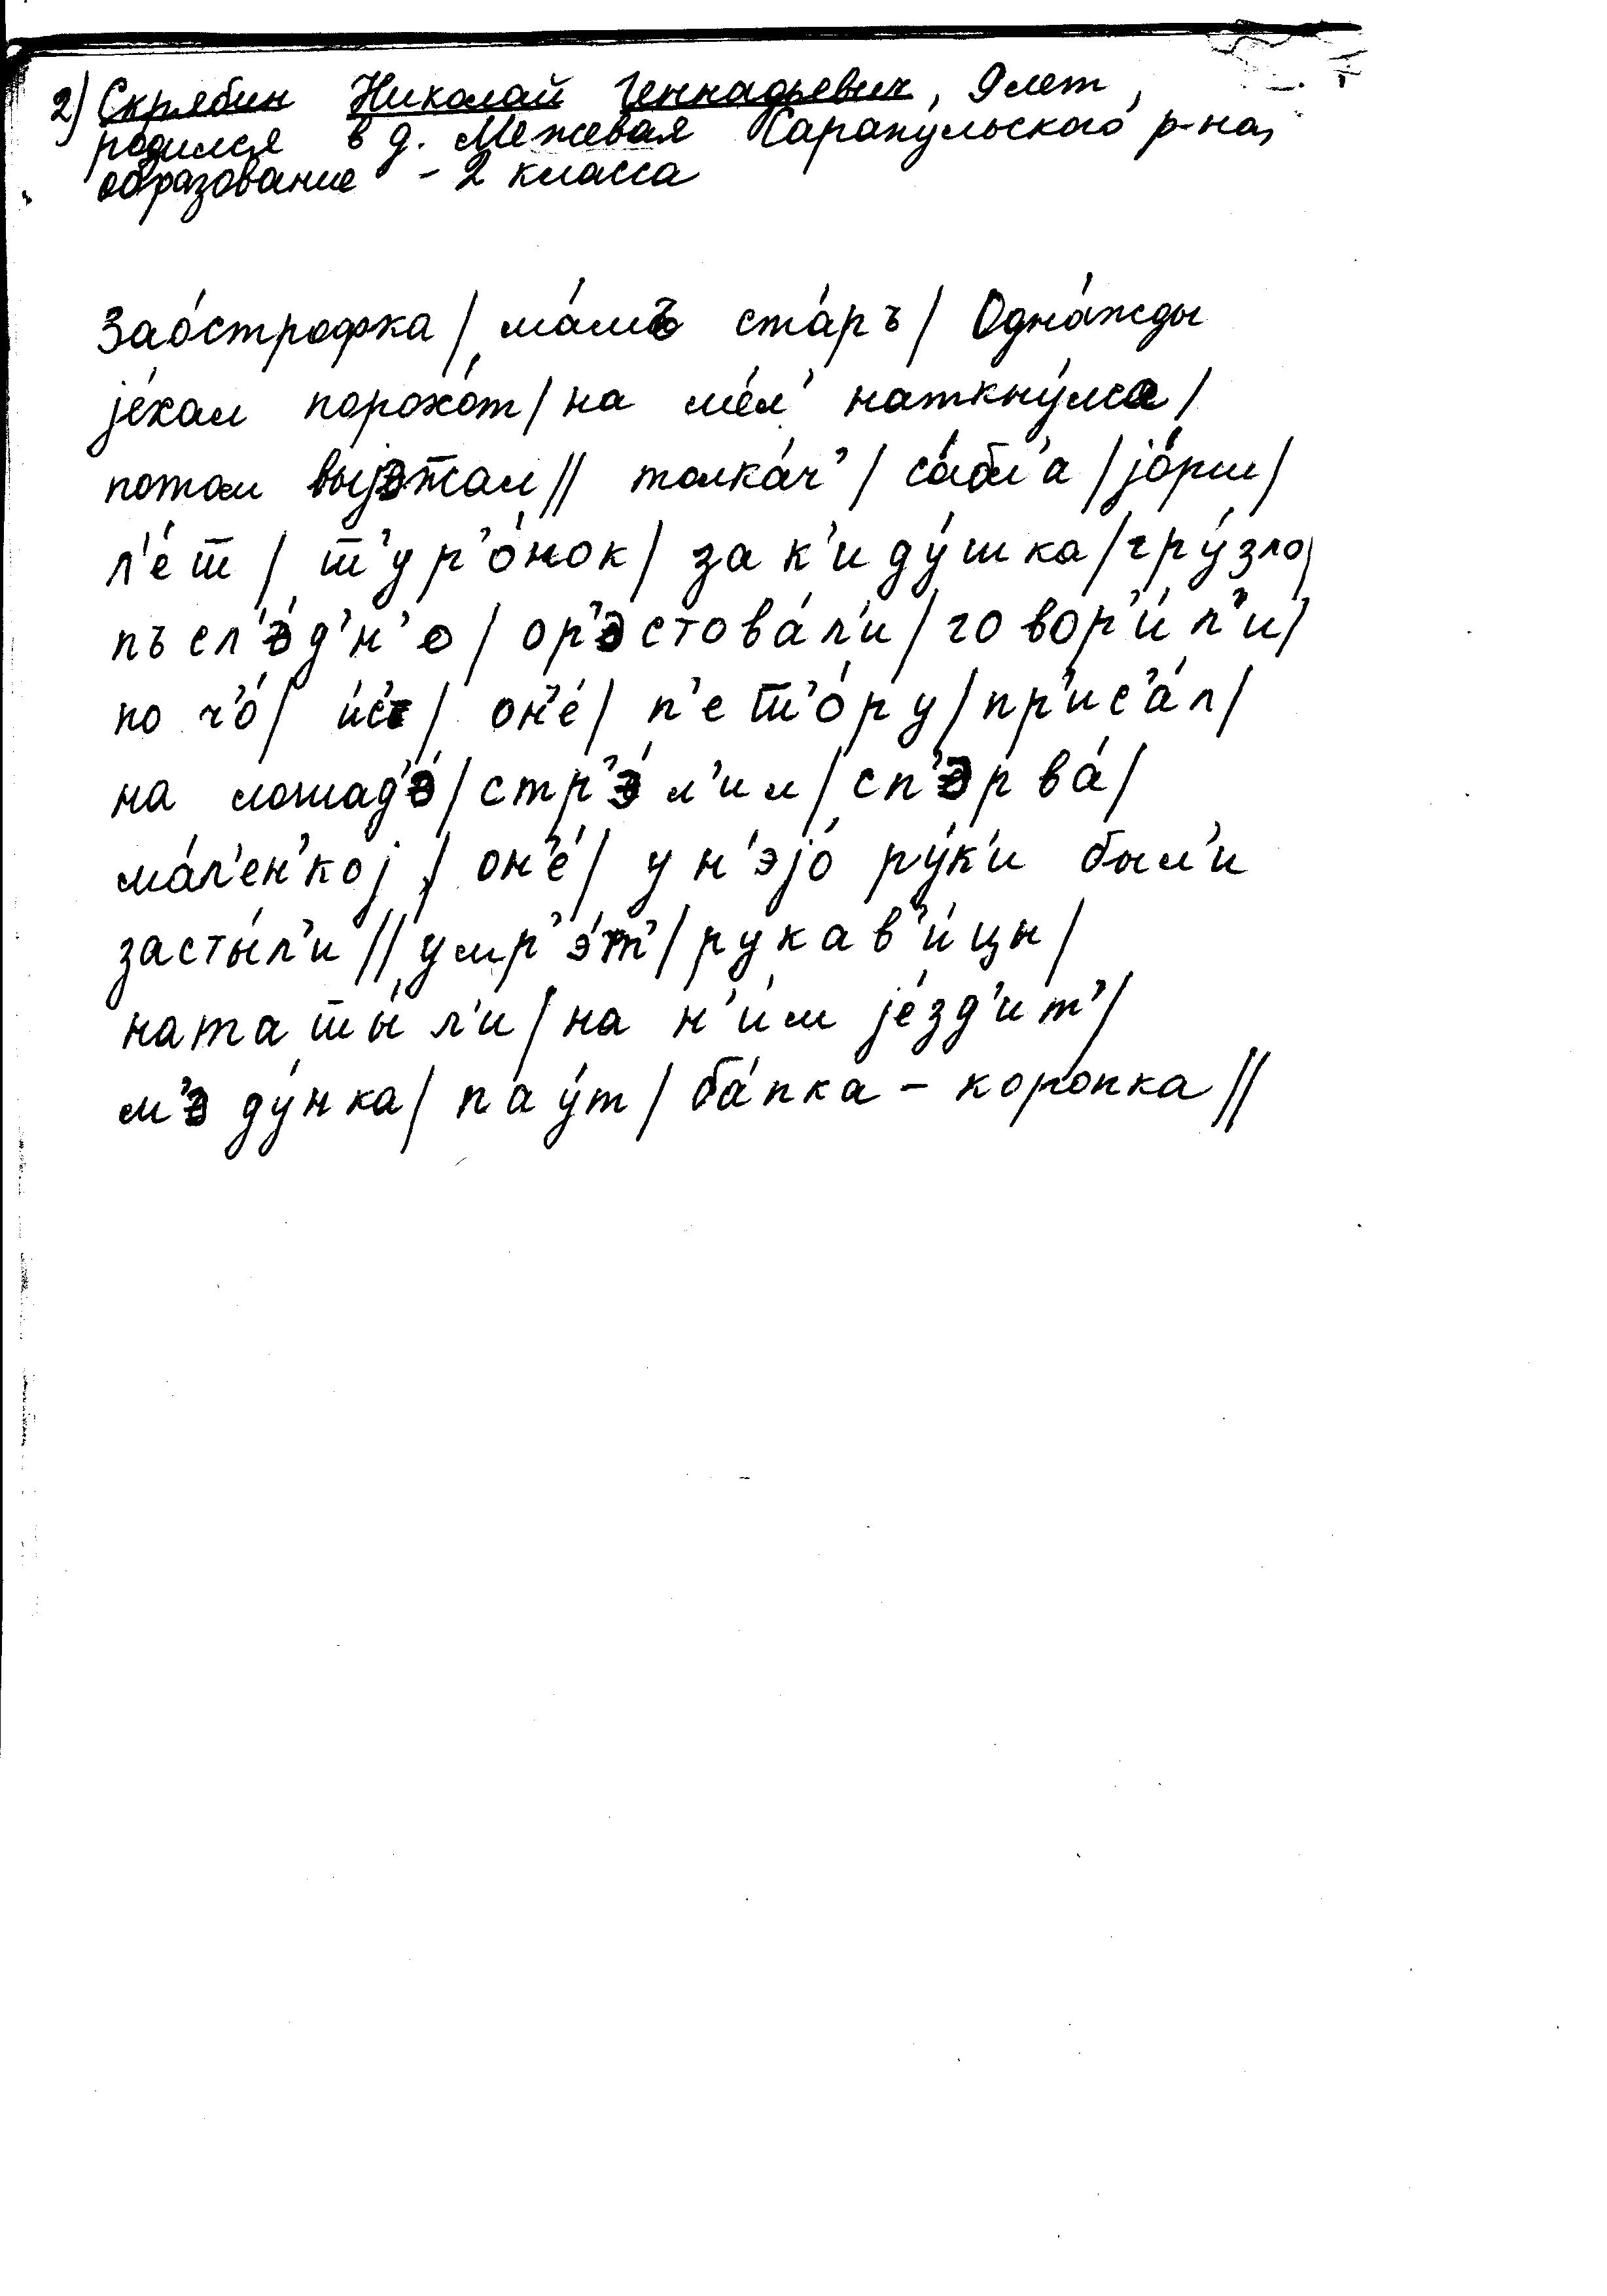 2) Скрябин Николай Геннадьевич, 9 лет,
родился в д. Межевая Сарапульского р-на,
образование - 2 класса
Зао́строфка / ма́мъ ста́ръ / Одна́жды
jе́хал порохо́т / на ме́л' наткну́лса /
потом выjэжал // толка́ч' / са́бл'а / jо́рш /
л'е́ш / ш'ур'о́нок / за к'иду́шка / гру́зло /
пъсл'э́д'н'о / ор'эстова́л'и / говор'и́л'и /
по ч'о́ / и́с'т' / он'е́ / п'ет'о́ру / пр'ис'а́л /
на лошад'э́ / стр'э́л'ил / сп'эрва́ /
ма́л'ен'коj / он'е́ / у н'эjо́ ру́к'и был'и
засты́л'и // умр'э́т' / рукав'и́цы /
наташы́л'и / на н'и́м jе́зд'ит' /
м'эду́нка / пау́т / ба́пка - коропка //